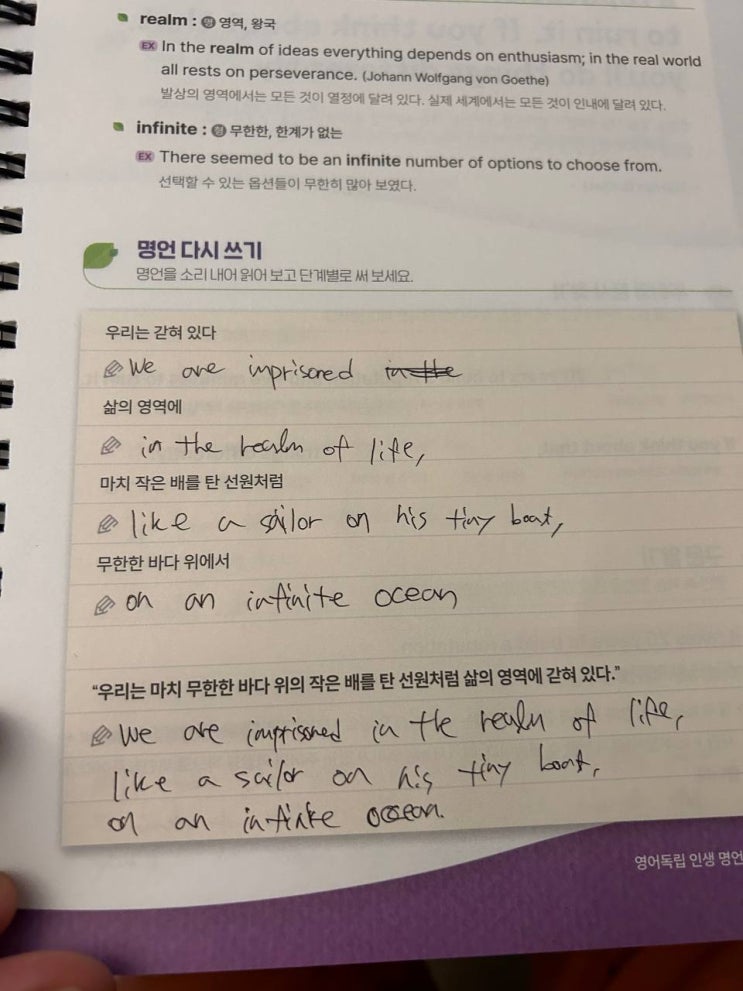 realm : 명 영역, 왕국
EX In the realm of ideas everything depends on enthusiasm; in the real world
all rests on perseverance. (Johann Wolfgang von Goethe)
발상의 영역에서는 모든 것이 열정에 달려 있다. 실제 세계에서는 모든 것이 인내에 달려 있다.
infinite : 형 무한한, 한계가 없는
EX There seemed to be an infinite number of options to choose from.
선택할 수 있는 옵션들이 무한히 많아 보였다.
명언 다시 쓰기
명언을 소리 내어 읽어 보고 단계별로 써 보세요.
우리는 갇혀 있다
We are imprisoned in the
삶의 영역에
in the realm of life,
마치 작은 배를 탄 선원처럼
like a sailor on his tiny boat,
무한한 바다 위에서
on an infinite ocean
“우리는 마치 무한한 바다 위의 작은 배를 탄 선원처럼 삶의 영역에 갇혀 있다.”
We are imprisoned in the realm of life,
like a sailor on his tiny boat,
on an infinite ocean.
영어독립 인생 명언